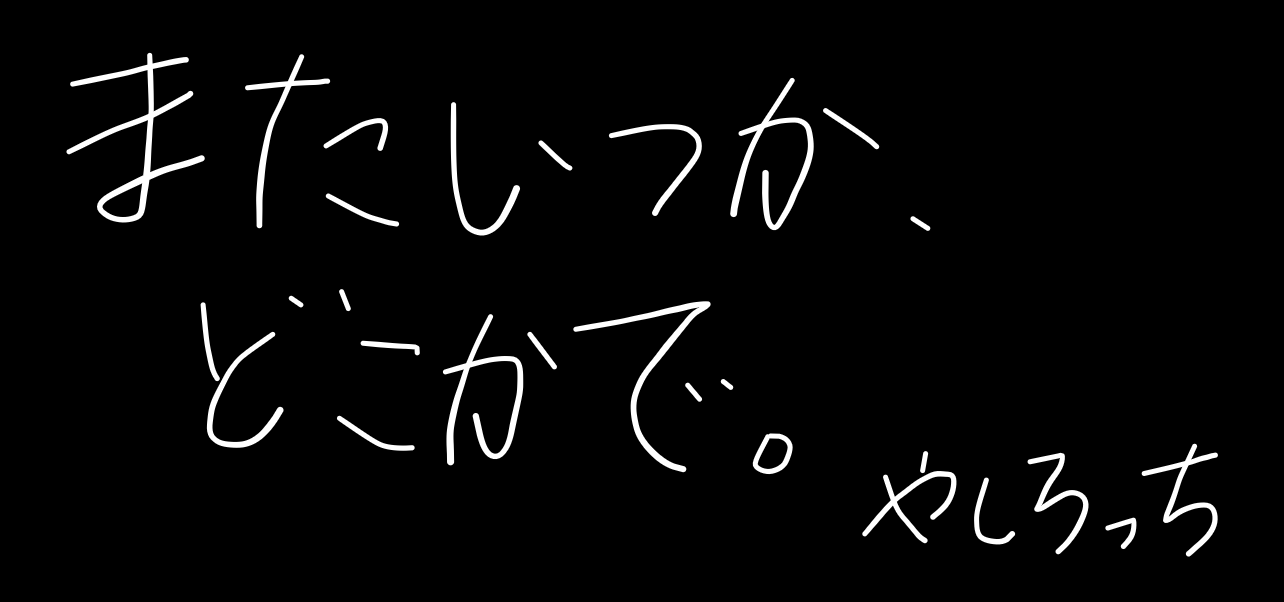 またいつか、
どこかで。
やしろっち